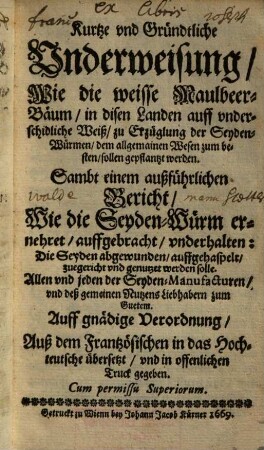 ex Libris
Kurtze und Gründtliche
Vnderweisung /
Wie die weisse Maulbeer-
Bäum / in disen Landen auff vnder-
schidliche Weiß / zu Erzüglung der Seyden-
Würmen / dem allgemainen Wesen zum be-
sten / sollen gepflantzt werden.
Sambt einem außführlichen
Bericht /
Wie die Seyden-Würm er-
nehret / auffgebracht / vnderhalten:
Die Seyden abgewunden / auffgehaspelt /
zuegericht vnd genutzet werden solle.
Allen vnd jeden der Seyden-Manufacturen /
vnd deß gemeinen Nutzens Liebhabern zum
Guetem.
Auff gnädige Verordnung /
Auß dem Frantzösischen in das Hoch-
teutsche übersetzt / vnd in offenlichen
Truck gegeben.
Cum permissu Superiorum.
Getruckt zu Wienn bey Johann Jacob Kürner 1669.